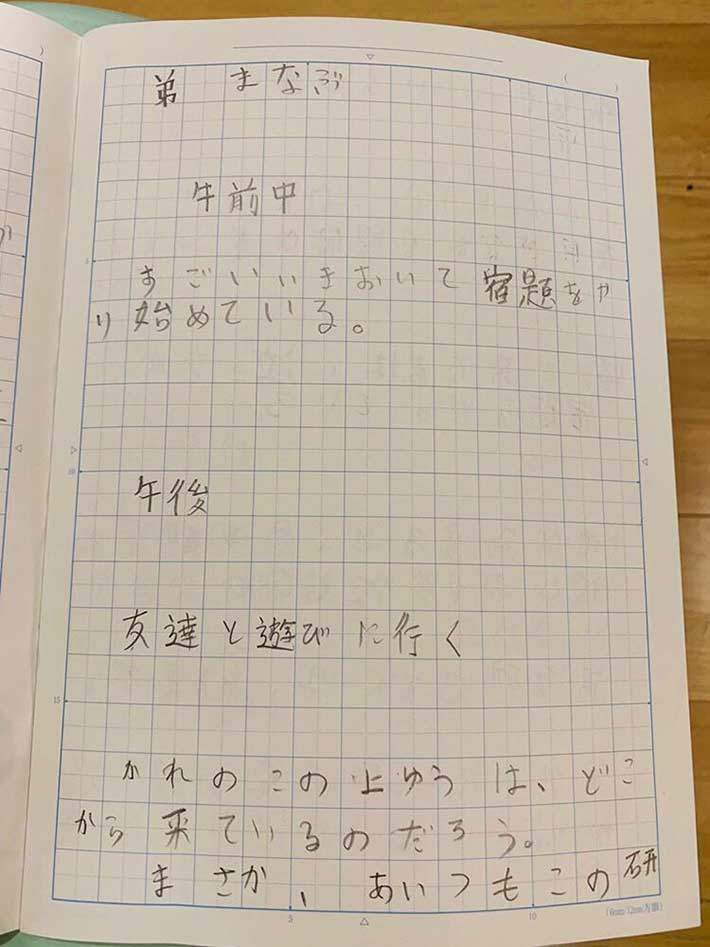 弟 まなぶ
午前中
すごいいきおいて宿題をや
り始めている。
午後
友達と遊びに行く
かれのこの上ゆうは、どこ
から来ているのだろう。
まさか、あいつもこの研
5
10
15
5
10